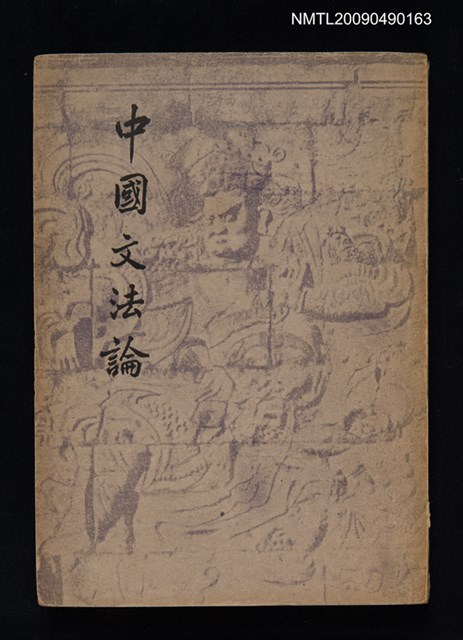 NMTL20090490163
中國文法論